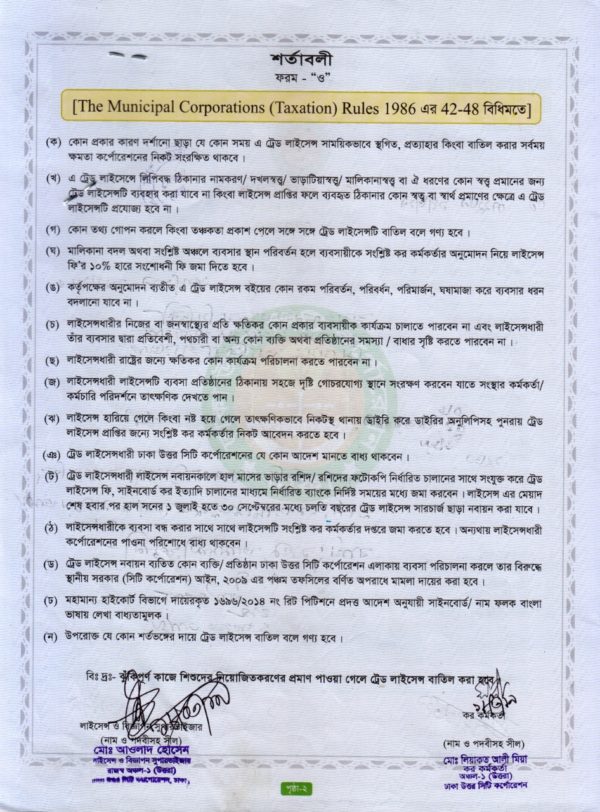 শর্তাবলী
ফরম - “ও”
[The Municipal Corporations (Taxation) Rules 1986 এর 42-48 বিধিমতে]
(ক) কোন প্রকার কারণ দর্শানো ছাড়া যে কোন সময় এ ট্রেড লাইসেন্স সাময়িকভাবে স্থগিত, প্রত্যাহার কিংবা বাতিল করার সর্বময়
ক্ষমতা কর্পোরেশনের নিকট সংরক্ষিত থাকবে।
(খ) এ ট্রেড লাইসেন্সে লিপিবদ্ধ ঠিকানার নামকরণ/ দখলস্বত্ত্ব/ ভাড়াটিয়াস্বত্ত্ব/ মালিকানাস্বত্ত্ব বা ঐ ধরণের কোন স্বত্ত্ব প্রমানের জন্য
ট্রেড লাইসেন্সটি ব্যবহার করা যাবে না কিংবা লাইসেন্স প্রাপ্তির ফলে ব্যবহৃত ঠিকানার কোন স্বত্ব বা স্বার্থ প্রমাণের ক্ষেত্রে এ ট্রেড
লাইসেন্সটি প্রযোজ্য হবে না।
(গ) কোন তথ্য গোপন করলে কিংবা তঞ্চকতা প্রকাশ পেলে সঙ্গে সঙ্গে ট্রেড লাইসেন্সটি বাতিল বলে গণ্য হবে।
(ঘ) মালিকানা বদল অথবা সংশ্লিষ্ট অঞ্চলে ব্যবসার স্থান পরিবর্তন হলে ব্যবসায়ীকে সংশ্লিষ্ট কর কর্মকর্তার অনুমোদন নিয়ে লাইসেন্স
ফি'র ১০% হারে সংশোধনী ফি জমা দিতে হবে।
(ঙ) কর্তৃপক্ষের অনুমোদন ব্যতীত এ ট্রেড লাইসেন্স বইয়ের কোন রকম পরিবর্তন, পরিবর্ধন, পরিমার্জন, ঘষামাজা করে ব্যবসার ধরন
বদলানো যাবে না।
(চ) লাইসেন্সধারীর নিজের বা জনস্বাস্থ্যের প্রতি ক্ষতিকর কোন প্রকার ব্যবসায়ীক কার্যক্রম চালাতে পারবেন না এবং লাইসেন্সধারী
তাঁর ব্যবসার দ্বারা প্রতিবেশী, পথচারী বা অন্য কোন ব্যক্তি অথবা প্রতিষ্ঠানের সমস্যা / বাধার সৃষ্টি করতে পারবেন না।
(ছ) লাইসেন্সধারী রাষ্ট্রের জন্যে ক্ষতিকর কোন কার্যক্রম পরিচালনা করতে পারবেন না।
(জ) লাইসেন্সধারী লাইসেন্সটি ব্যবসা প্রতিষ্ঠানের ঠিকানায় সহজে দৃষ্টি গোচরযোগ্য স্থানে সংরক্ষণ করবেন যাতে সংস্থার কর্মকর্তা/
কর্মচারি পরিদর্শনে তাৎক্ষণিক দেখতে পান।
(ঝ) লাইসেন্স হারিয়ে গেলে কিংবা নষ্ট হয়ে গেলে তাৎক্ষণিকভাবে নিকটস্থ থানায় ডাইরি করে ডাইরির অনুলিপিসহ পুনরায় ট্রেড
লাইসেন্স প্রাপ্তির জন্যে সংশ্লিষ্ট কর কর্মকর্তার নিকট আবেদন করতে হবে।
(ঞ) ট্রেড লাইসেন্সধারী ঢাকা উত্তর সিটি কর্পোরেশনের যে কোন আদেশ মানতে বাধ্য থাকবেন।
(ট) ট্রেড লাইসেন্সধারী লাইসেন্স নবায়নকালে হাল মাসের ভাড়ার রশিদ/ রশিদের ফটোকপি নির্ধারিত চালানের সাথে সংযুক্ত করে ট্রেড
লাইসেন্স ফি, সাইনবোর্ড কর ইত্যাদি চালানের মাধ্যমে নির্ধারিত ব্যাংকে নির্দিষ্ট সময়ের মধ্যে জমা করবেন। লাইসেন্স এর মেয়াদ
শেষ হবার পর হাল সনের ১ জুলাই হতে ৩০ সেপ্টেম্বরের মধ্যে চলতি বছরের ট্রেড লাইসেন্স সারচার্জ ছাড়া নবায়ন করা যাবে।
(ঠ) লাইসেন্সধারীকে ব্যবসা বন্ধ করার সাথে সাথে লাইসেন্সটি সংশ্লিষ্ট কর কর্মকর্তার দপ্তরে জমা করতে হবে। অন্যথায় লাইসেন্সধারী
কর্পোরেশনের পাওনা পরিশোধে বাধ্য থাকবেন।
(ড) ট্রেড লাইসেন্স নবায়ন ব্যতিত কোন ব্যক্তি/ প্রতিষ্ঠান ঢাকা উত্তর সিটি কর্পোরেশন এলাকায় ব্যবসা পরিচালনা করলে তার বিরুদ্ধে
স্থানীয় সরকার (সিটি কর্পোরেশন) আইন, ২০০৯ এর পঞ্চম তফসিলের বর্ণিত অপরাধে মামলা দায়ের করা হবে।
(ঢ) মহামান্য হাইকোর্ট বিভাগে দায়েরকৃত ১৬৯৬/২০১৪ নং রিট পিটিশনে প্রদত্ত আদেশ অনুযায়ী সাইনবোর্ড/ নাম ফলক বাংলা
ভাষায় লেখা বাধ্যতামূলক।
(ন) উপরোক্ত যে কোন শর্তভঙ্গের দায়ে ট্রেড লাইসেন্স বাতিল বলে গণ্য হবে।
বিঃ দ্রঃ- ঝুঁকিপূর্ণ কাজে শিশুদের নিয়োজিতকরণের প্রমাণ পাওয়া গেলে ট্রেড লাইসেন্স বাতিল করা হবে।
লাইসেন্স ও বিজ্ঞাপন সুপারভাইজার
(নাম ও পদবীসহ সীল)
মোঃ আওলাদ হোসেন
লাইসেন্স ও বিজ্ঞাপন সুপারভাইজার
রাজস্ব অঞ্চল-১ (উত্তরা)
ঢাকা উত্তর সিটি কর্পোরেশন, ঢাকা।
কর কর্মকর্তা
(নাম ও পদবীসহ সীল)
মোঃ লিয়াকত আলী মিয়া
কর কর্মকর্তা
অঞ্চল-১ (উত্তরা)
ঢাকা উত্তর সিটি কর্পোরেশন
পৃষ্ঠা-২